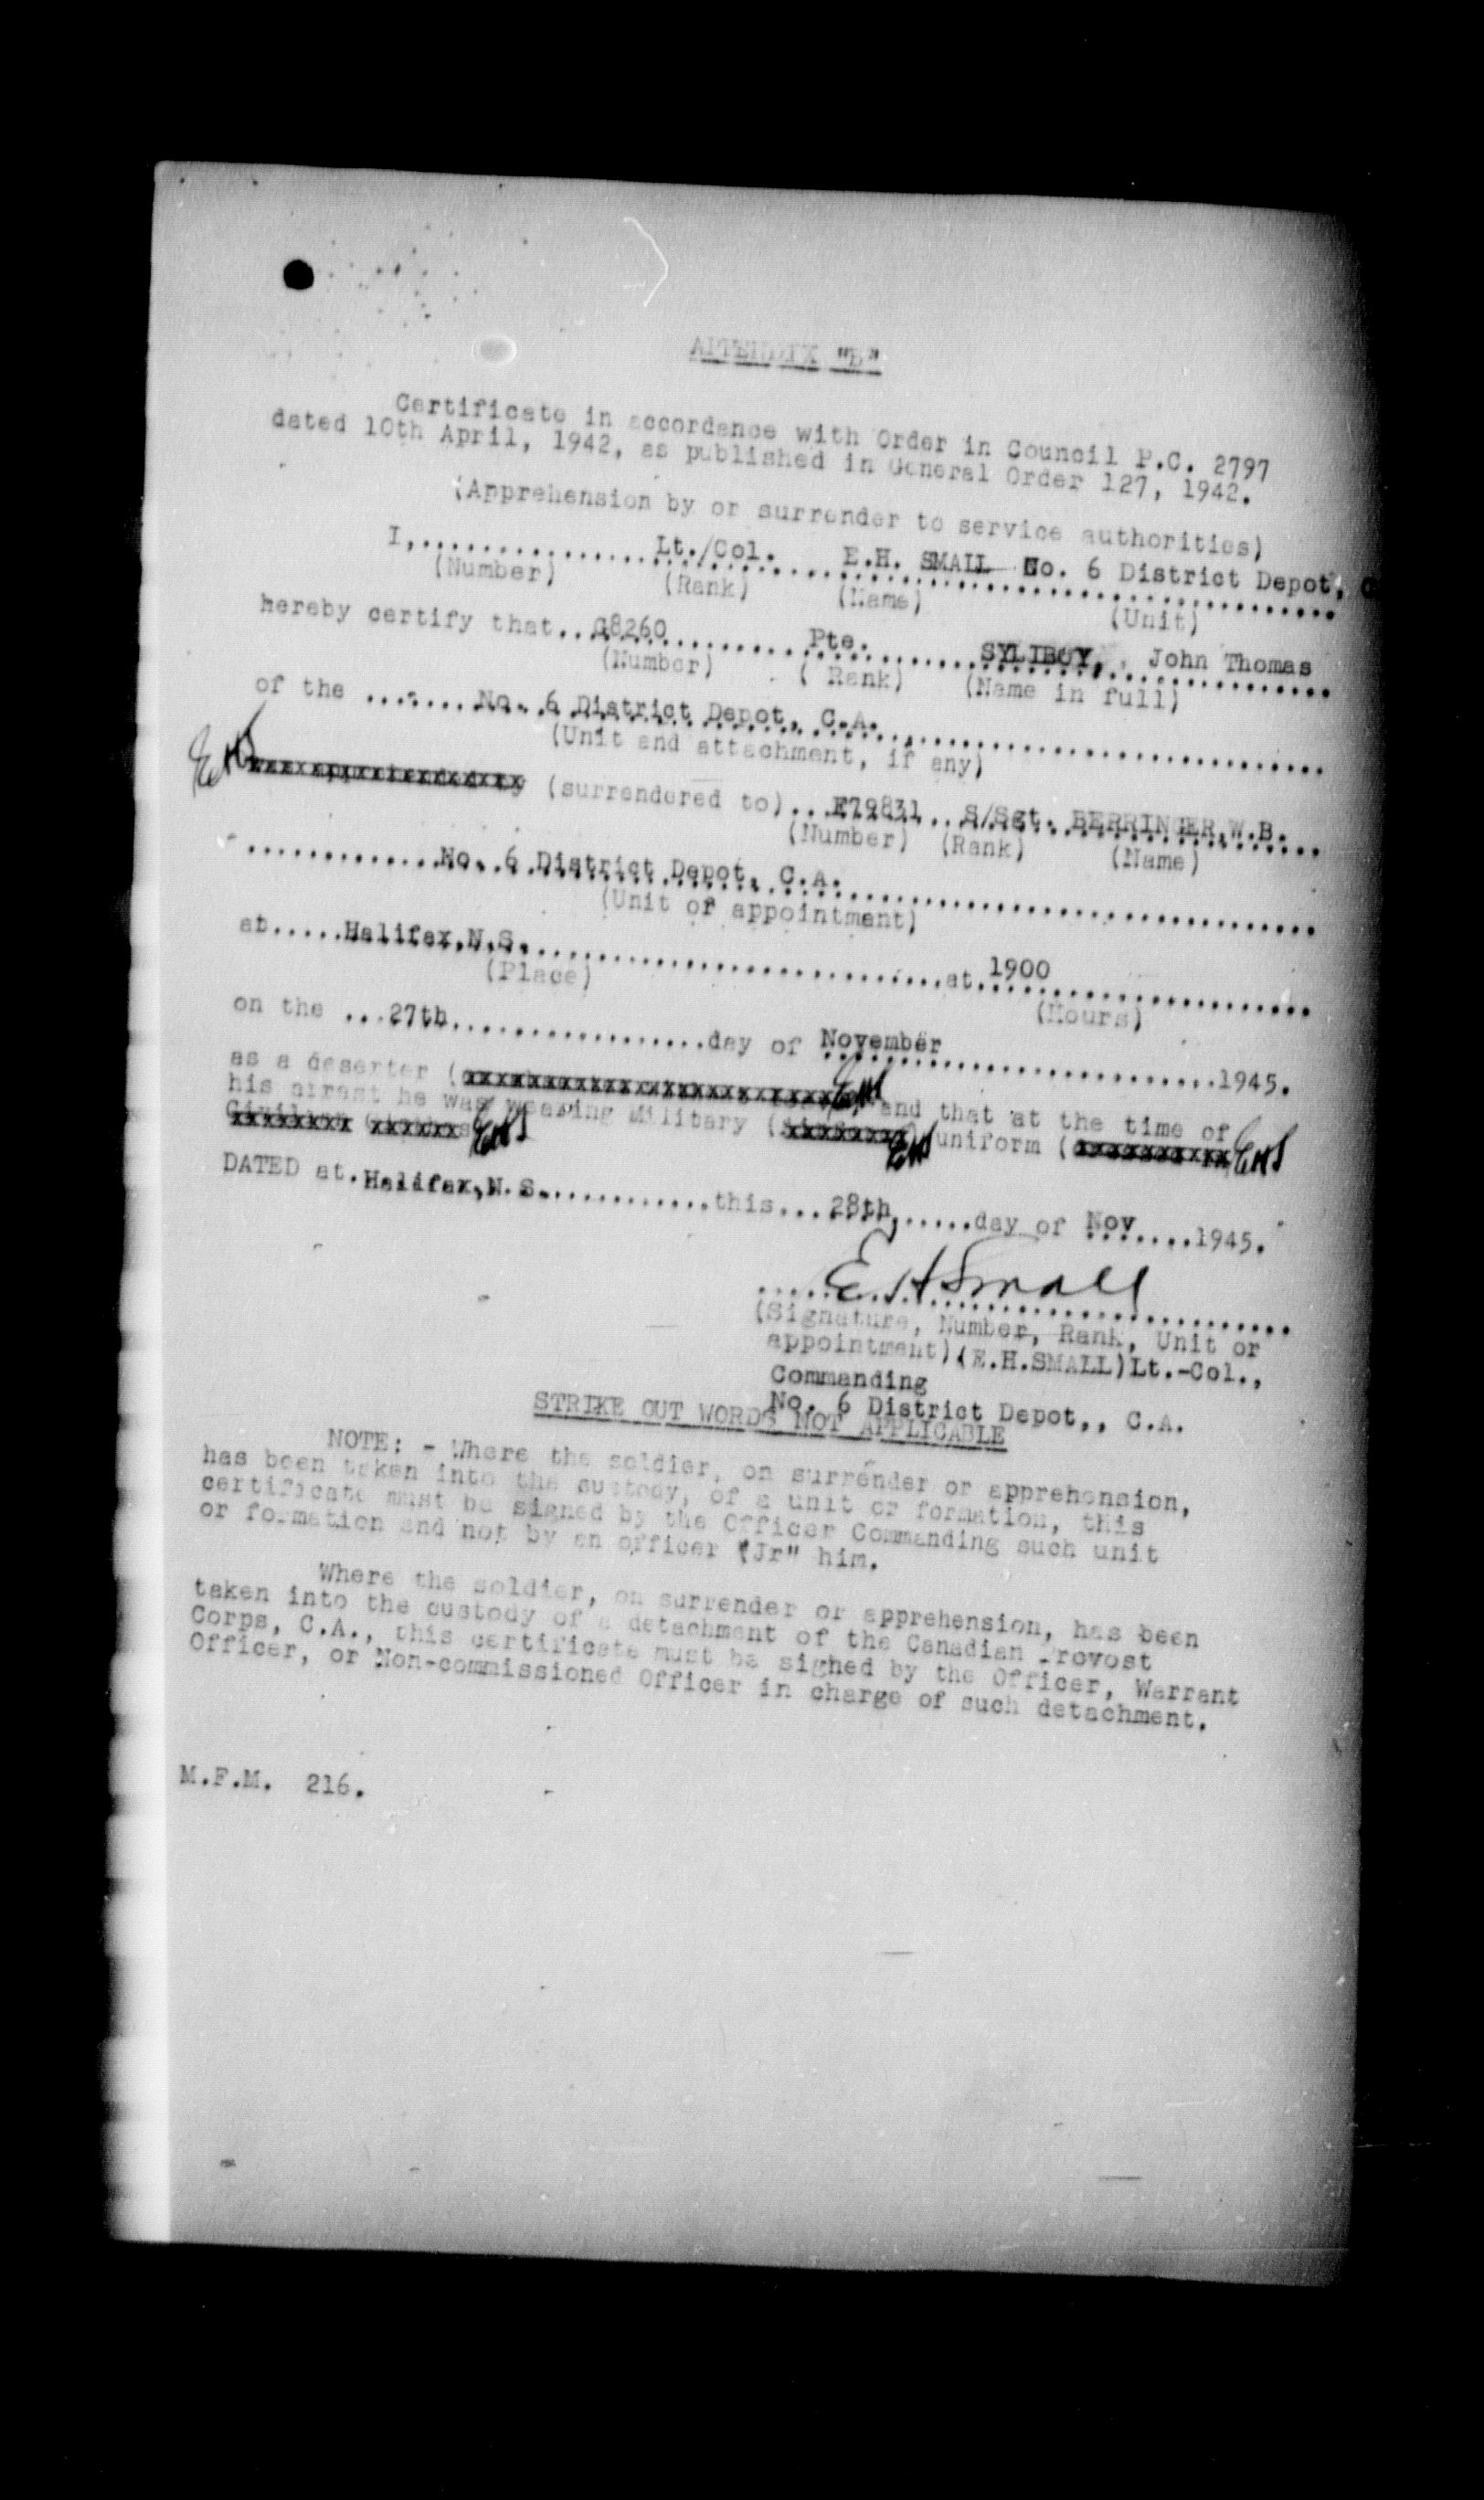 APPENDIX "B"
Certificate in accordance with Order in Council P.C. 2797
dated 10th April, 1942, as published in General Order 127, 1942.
(Apprehension by or surrender to service authorities)
I,..................Lt./Col. E.H. SMALL No. 6 District Depot, C
(Number) (Rank) (Name) (Unit)
hereby certify that...G8260......Pte......SYLIBOY, John Thomas
(Number) ( Rank) (Name in full)
of the .......No. 6 District Depot, C.A.......
(Unit and attachment, if any)
EHS (surrendered to)...F79831...S/Sgt. BERRINGER,W.B.
(Number) (Rank) (Name)
...............No. 6 District Depot, C.A.......
(Unit or appointment)
at.....Halifax,N.S...........at 1900
(Place) (Hours)
on the ...27th..................day of November..................1945.
as a deserter ( EHS and that at the time of
his arrest he was wearing Military ( EHS uniform ( EHS
EHS
DATED at.Halifax,N.S.............this...28th......day of Nov.....1945.
E H Small
(Signature, Number, Rank, Unit or
appointment)(E.H.SMALL)Lt.-Col.,
Commanding
No. 6 District Depot,, C.A.
STRIKE OUT WORDS NOT APPLICABLE
NOTE: - Where the soldier, on surrender or apprehension,
has been taken into the custody, of a unit or formation, this
certificate must be signed by the Officer Commanding such unit
or formation and not by an officer "Jr" him.
Where the soldier, on surrender or apprehension, has been
taken into the custody of a detachment of the Canadian Provost
Corps, C.A., this certificate must be signed by the Officer, Warrant
Officer, or Non-commissioned Officer in charge of such detachment.
M.F.M. 216.